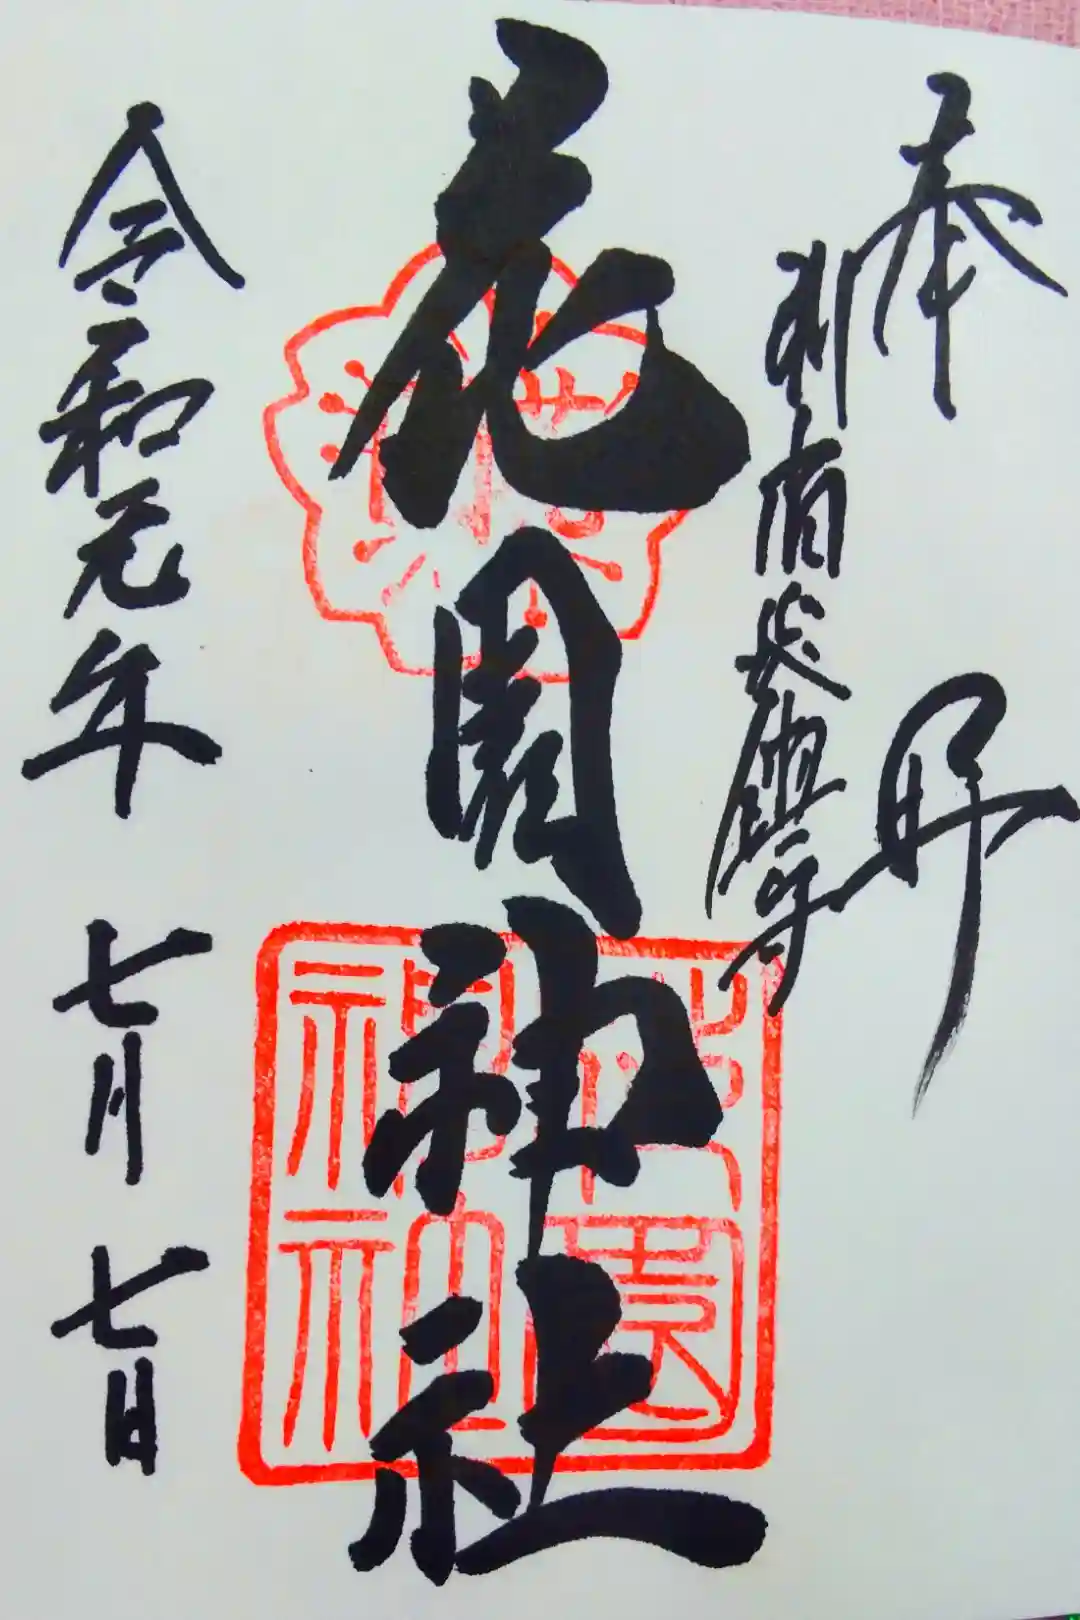 奉拝
新宿総鎮守
花園神社
令和元年 七月 七日
花園神社